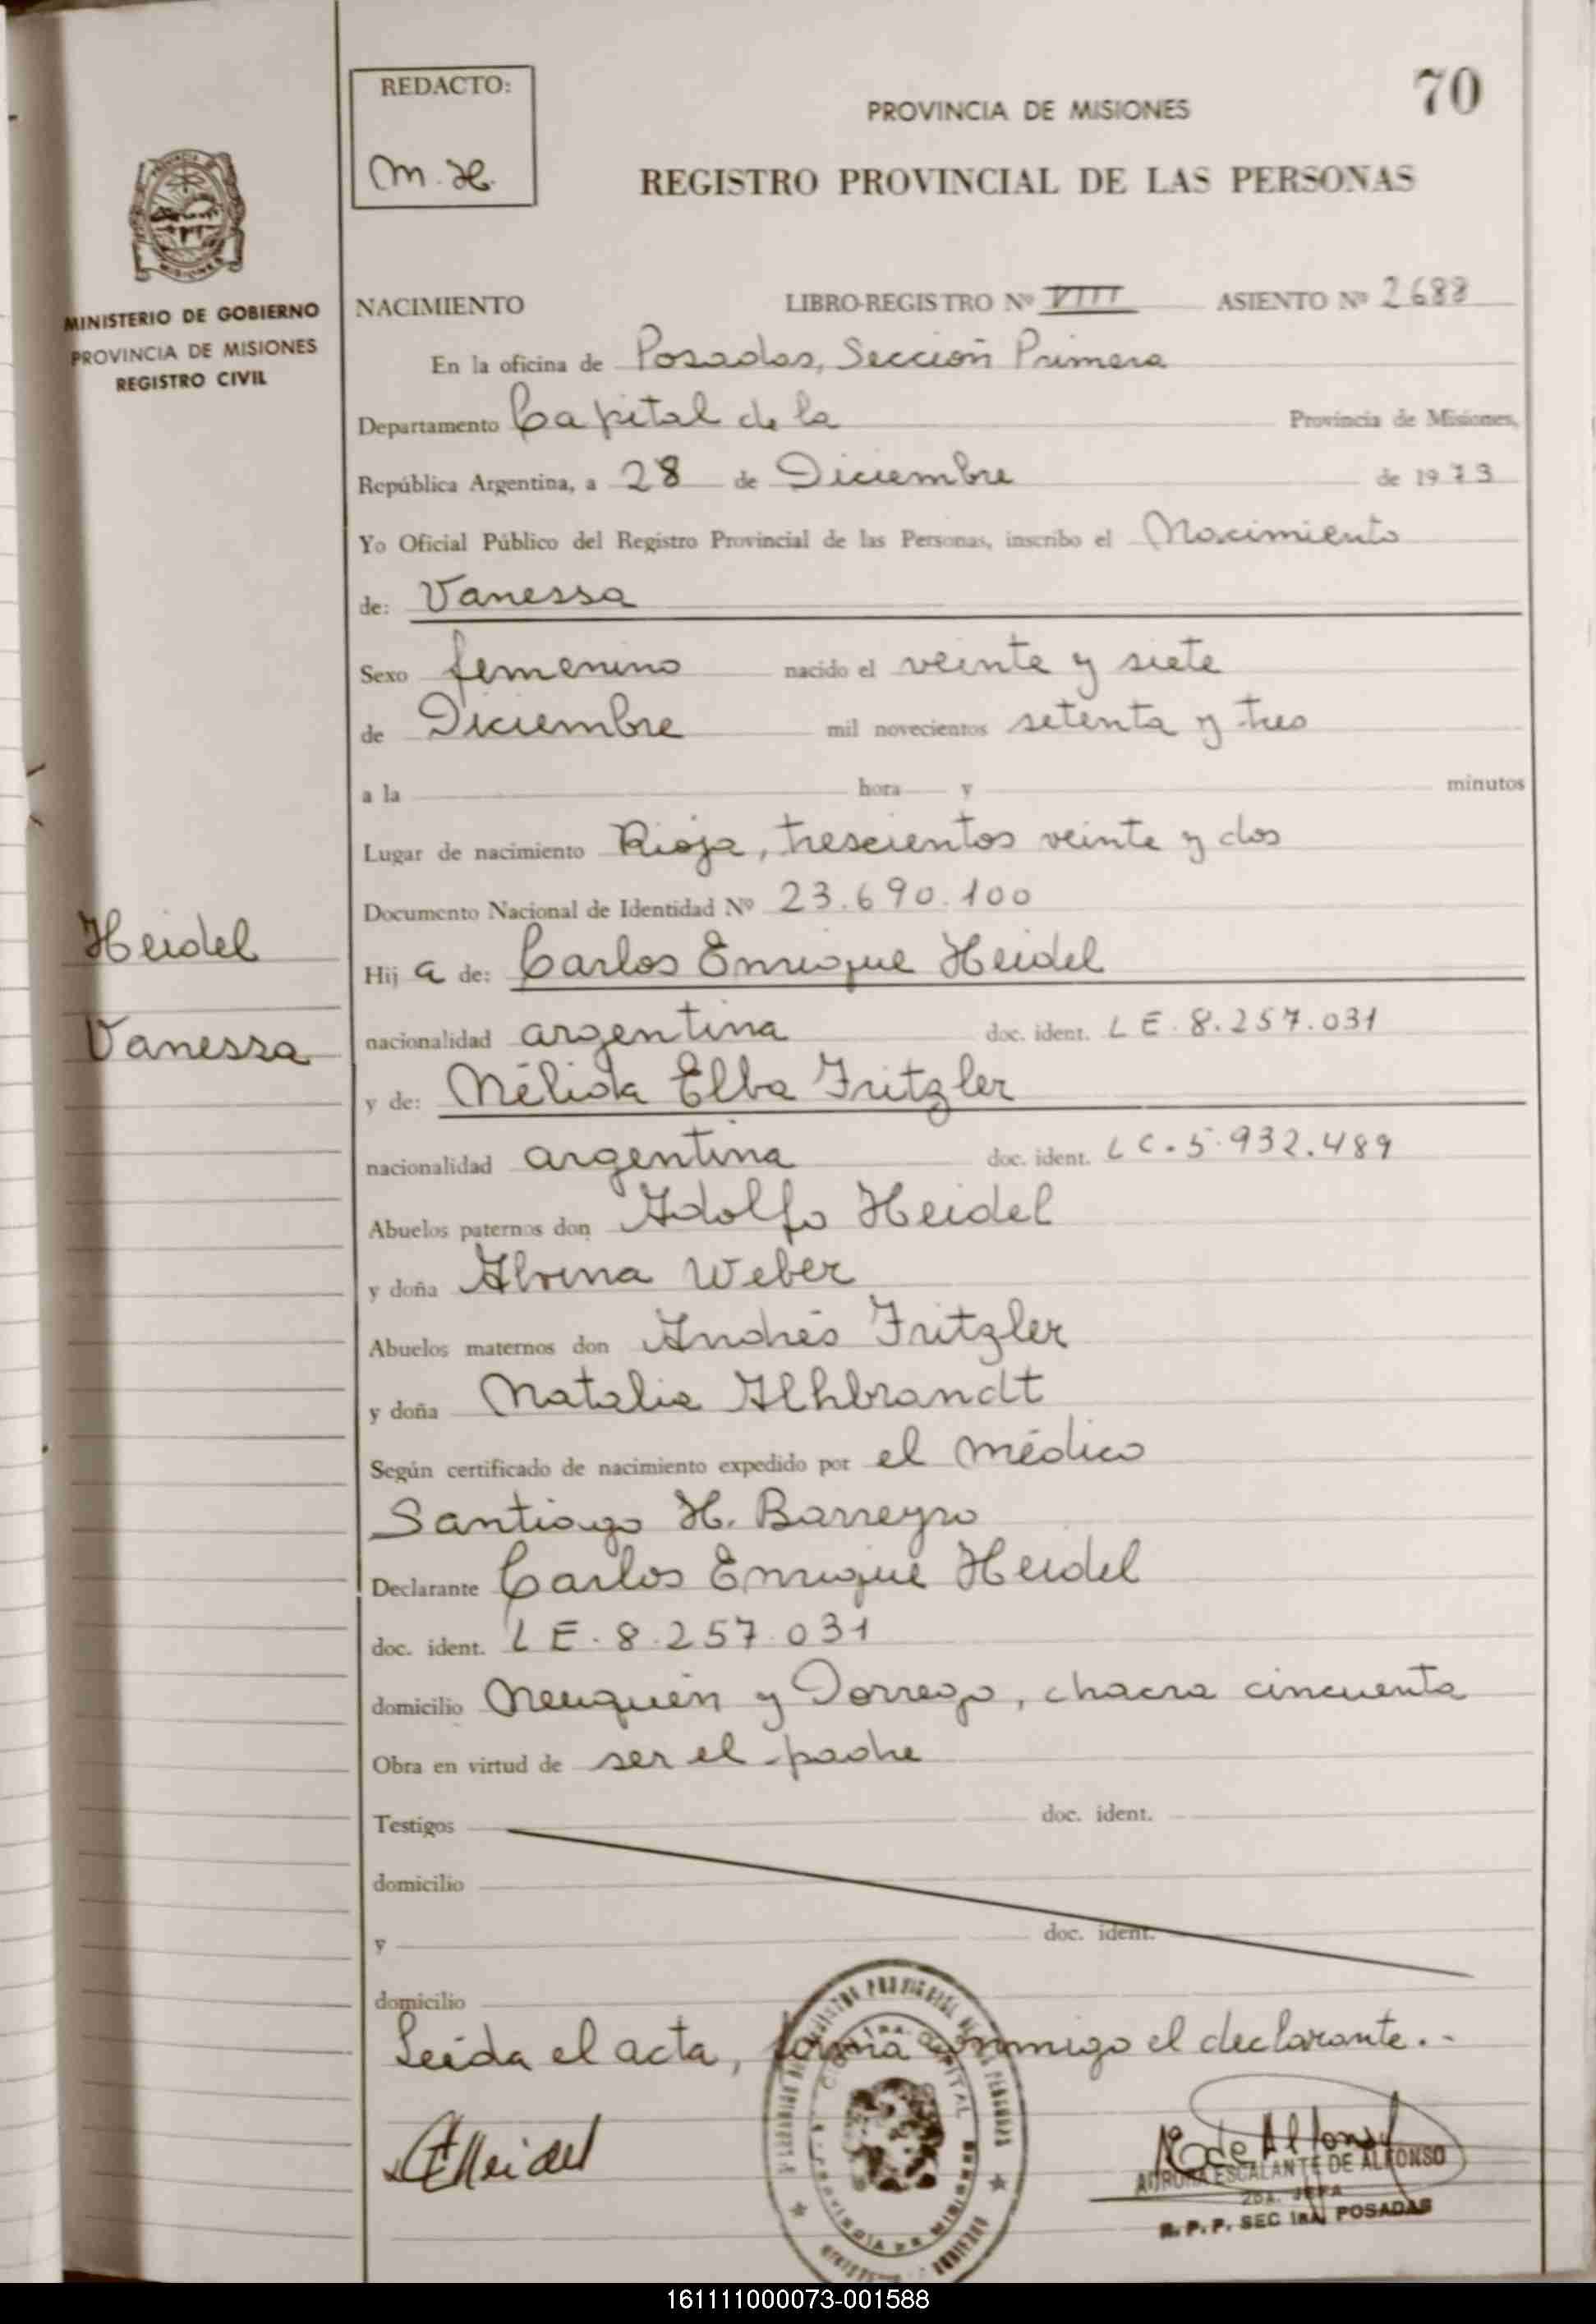 70
REDACTO:
M. H.
PROVINCIA DE MISIONES
REGISTRO PROVINCIAL DE LAS PERSONAS
MISIONES
MINISTERIO DE GOBIERNO
PROVINCIA DE MISIONES
REGISTRO CIVIL
NACIMIENTO LIBRO-REGISTRO Nº VIII ASIENTO Nº 2688
En la oficina de Posadas, Sección Primera
Departamento Capital de la Provincia de Misiones,
República Argentina, a 28 de Diciembre de 1973
Yo Oficial Público del Registro Provincial de las Personas, inscribo el Nacimiento
de: Vanessa
Sexo femenino nacido el veinte y siete
de Diciembre mil novecientos setenta y tres
a la hora y minutos
Lugar de nacimiento Rioja, trescientos veinte y dos
Documento Nacional de Identidad Nº 23.690.100
Heidel
Hij a de: Carlos Enrique Heidel
Vanessa
nacionalidad argentina doc. ident. L E. 8.257.031
y de: Nélida Elba Fritzler
nacionalidad argentina doc. ident. L C. 5.932.489
Abuelos paternos don Adolfo Heidel
y doña Alvina Weber
Abuelos maternos don Andrés Fritzler
y doña Natalia Alhbrandt
Según certificado de nacimiento expedido por el médico
Santiago H. Barreyro
Declarante Carlos Enrique Heidel
doc. ident. L E. 8.257.031
domicilio Neuquén y Dorrego, chacra cincuenta
Obra en virtud de ser el padre
Testigos doc. ident.
domicilio
y doc. ident.
domicilio
Leída el acta, firma conmigo el declarante.-
CEHeidel
AURORA ESCALANTE DE ALFONSO
2DA. JEFA
R.P.P. SEC 1RA. POSADAS
161111000073-001588